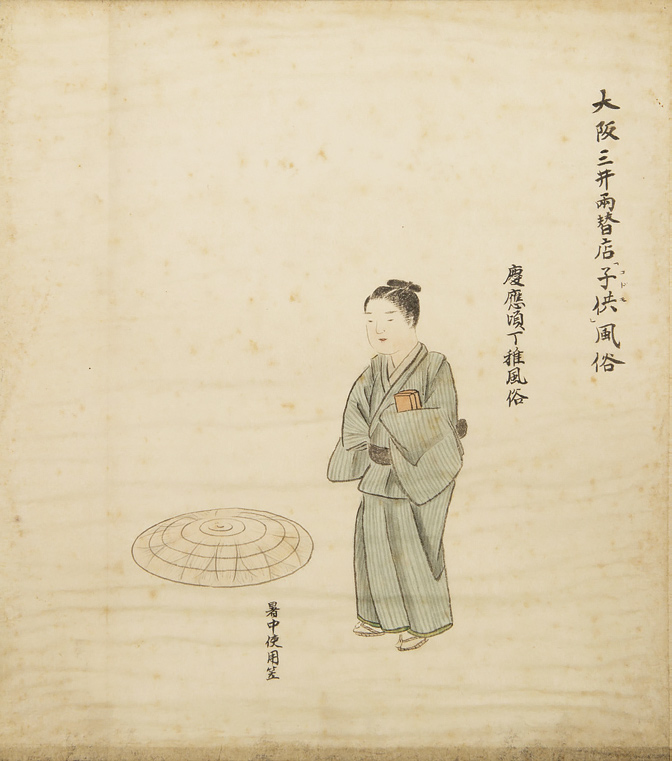 大阪三井兩替店「子供」風俗
コドモ
慶應頃丁稚風俗
暑中使用笠